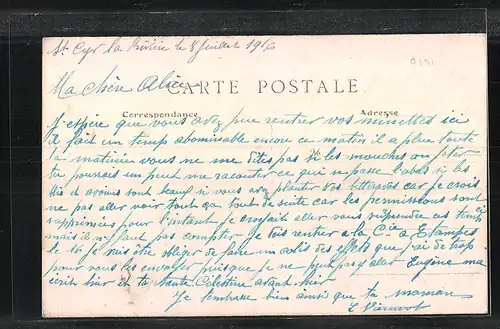 St Cyr la Rivière le 8 Juillet 1916
Ma chère Alice
CARTE POSTALE
Correspondance
Adresse
J'espère que vous avez pue rentrer vos minettes ici
il fait un temps abominable encore ce matin il a plue toute
la matinée vous ne me dites pas si les mouches
tu pourrais un peut me raconter ce qui se passe labas si les
blé et avoines sont beaux si vous avez planter vos bettraves car je crois
ne pas aller voir tout ça tout de suite car les permissions sont
suprimées pour l'intant je croyait aller vous surprendre ces temps ci
mais il ne faut pas compter je vais rentrer a la Cie a Etampes
le 16 je vais être obliger de faire un colis des effets que j'ai de trop
pour vous les envoyer puisque je ne peut pas y aller Eugène ma
écrit hier et ta tante Célestine avant hier
Je t'embrasse bien ainsi que ta maman